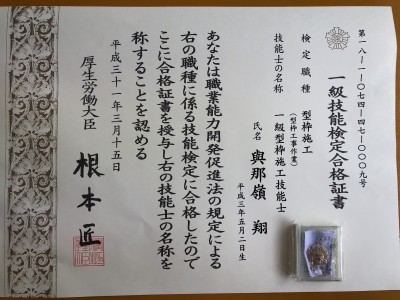 第一八-一-〇七四-四七-〇〇〇九号
一級技能検定合格証書
検定職種 型枠施工
(型枠工事作業)
技能士の名称 一級型枠施工技能士
氏名 與那嶺 翔
平成三年五月二日生
あなたは職業能力開発促進法の規定による
右の職種に係る技能検定に合格したので
ここに合格証書を授与し右の技能士の名称を
称することを認める
平成三十一年三月十五日
厚生労働大臣 根本匠